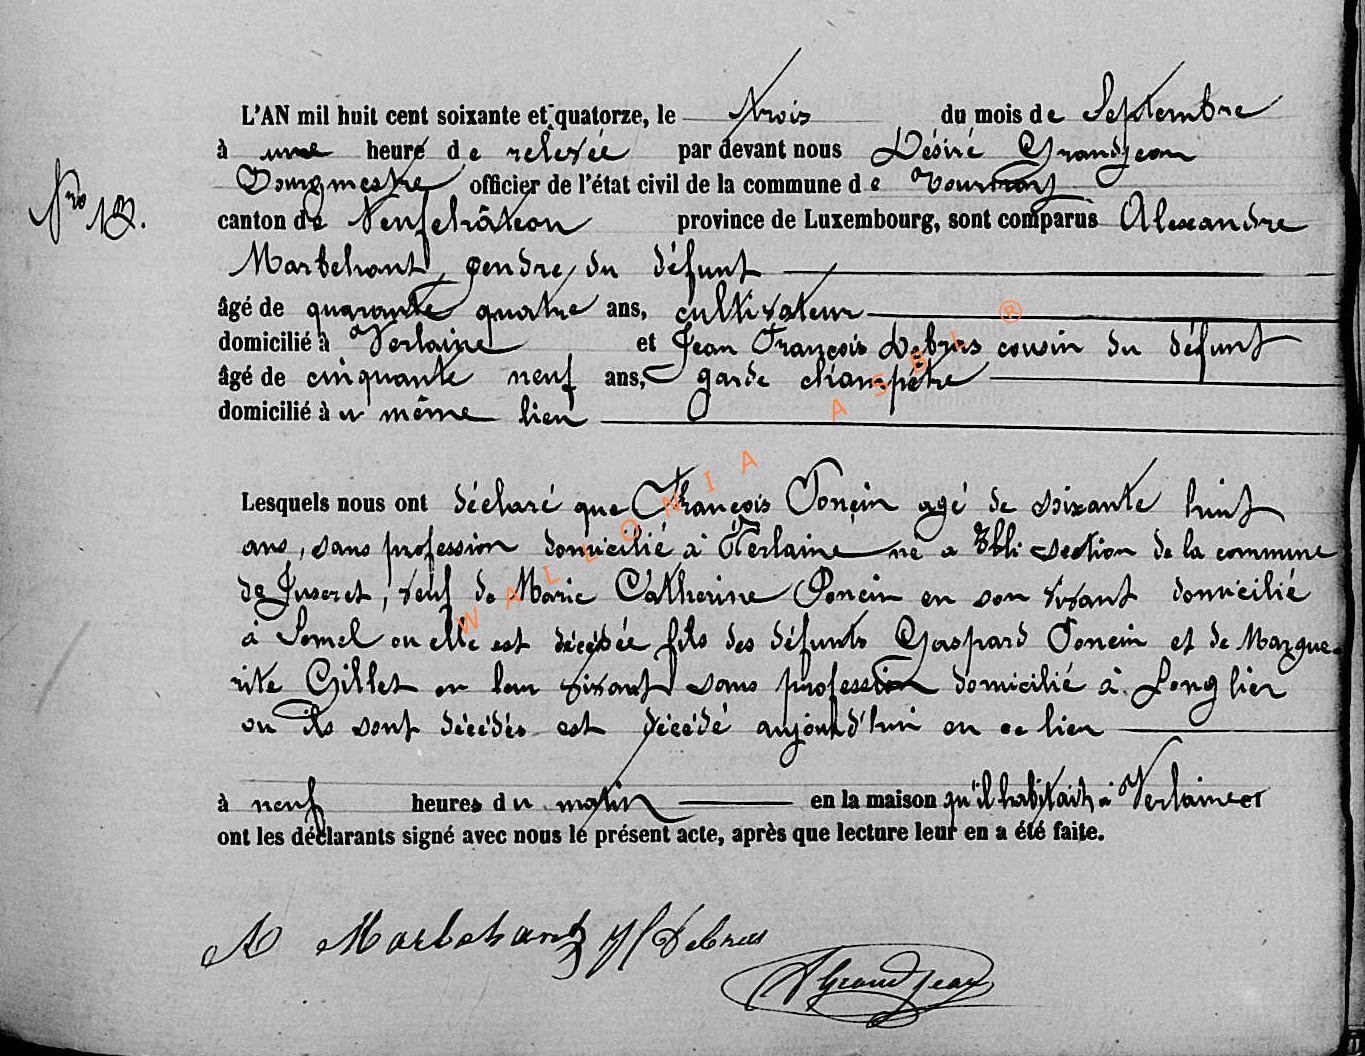 L'AN mil huit cent soixante et quatorze, le trois du mois de Septembre
à une heure de relevée par devant nous Désiré Grandjean
Bourgmestre officier de l'état civil de la commune de Tournay
Nro 12. canton de Neufchâteau province de Luxembourg, sont comparus Alexandre
Marbehant, gendre du défunt
âgé de quarante quatre ans, cultivateur
domicilié à Verlaine et Jean François Debras cousin du défunt
âgé de cinquante neuf ans, garde champêtre
domicilié à u même lieu
Lesquels nous ont déclaré que François Poncin agé de soixante huit
ans, sans profession domicilié à Verlaine né a section de la commune
de Juseret, veuf de Marie Catherine Poncin en son vivant domicilié
à Semel ou elle est décédée fils des défunts Gaspard Poncin et de Margue-
rite Gillet en leur vivant sans profession domicilié à Longlier
ou ils sont décédés est décédé aujourd'hui en ce lieu
à neuf heures du matin en la maison qu'il habitait à Verlaine et
ont les déclarants signé avec nous le présent acte, après que lecture leur en a été faite.
A Marbehant Jf Debras
DGrandjean
WALLONIA ASBL ®